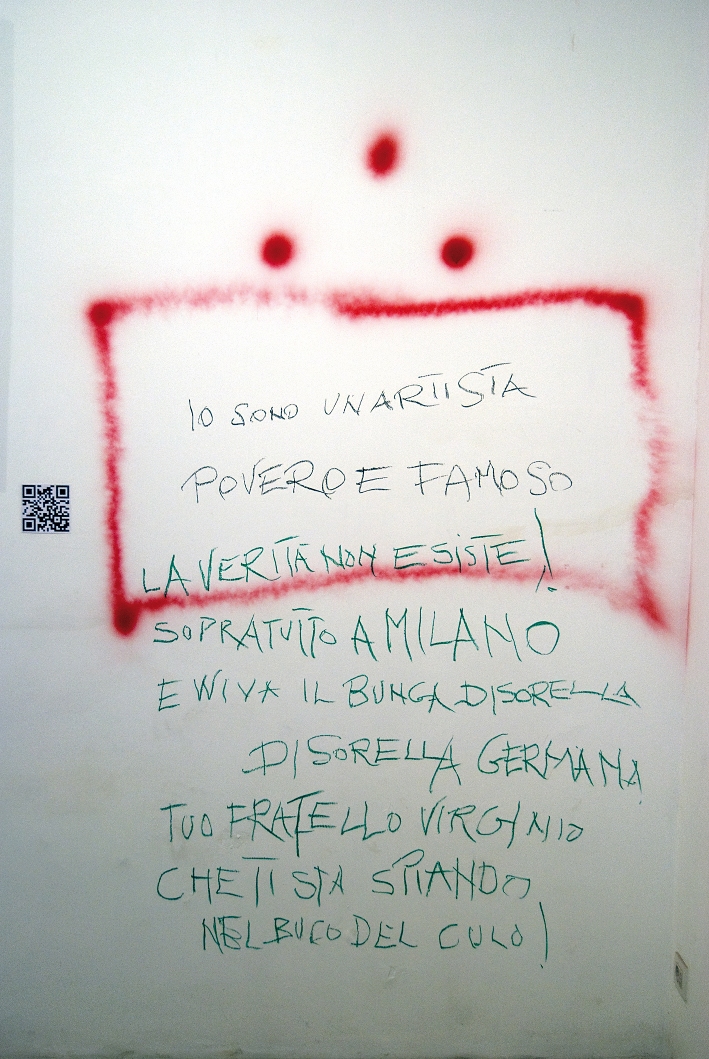 IO SONO UN ARTISTA
POVERO E FAMOSO
LA VERITÀ NON ESISTE!
SOPRATUTTO A MILANO
E WIVA IL BUNGA DI SORELLA
DI SORELLA GERMANA
TUO FRATELLO VIRGINIO
CHE TI STA SPIANDO
NEL BUCO DEL CULO!